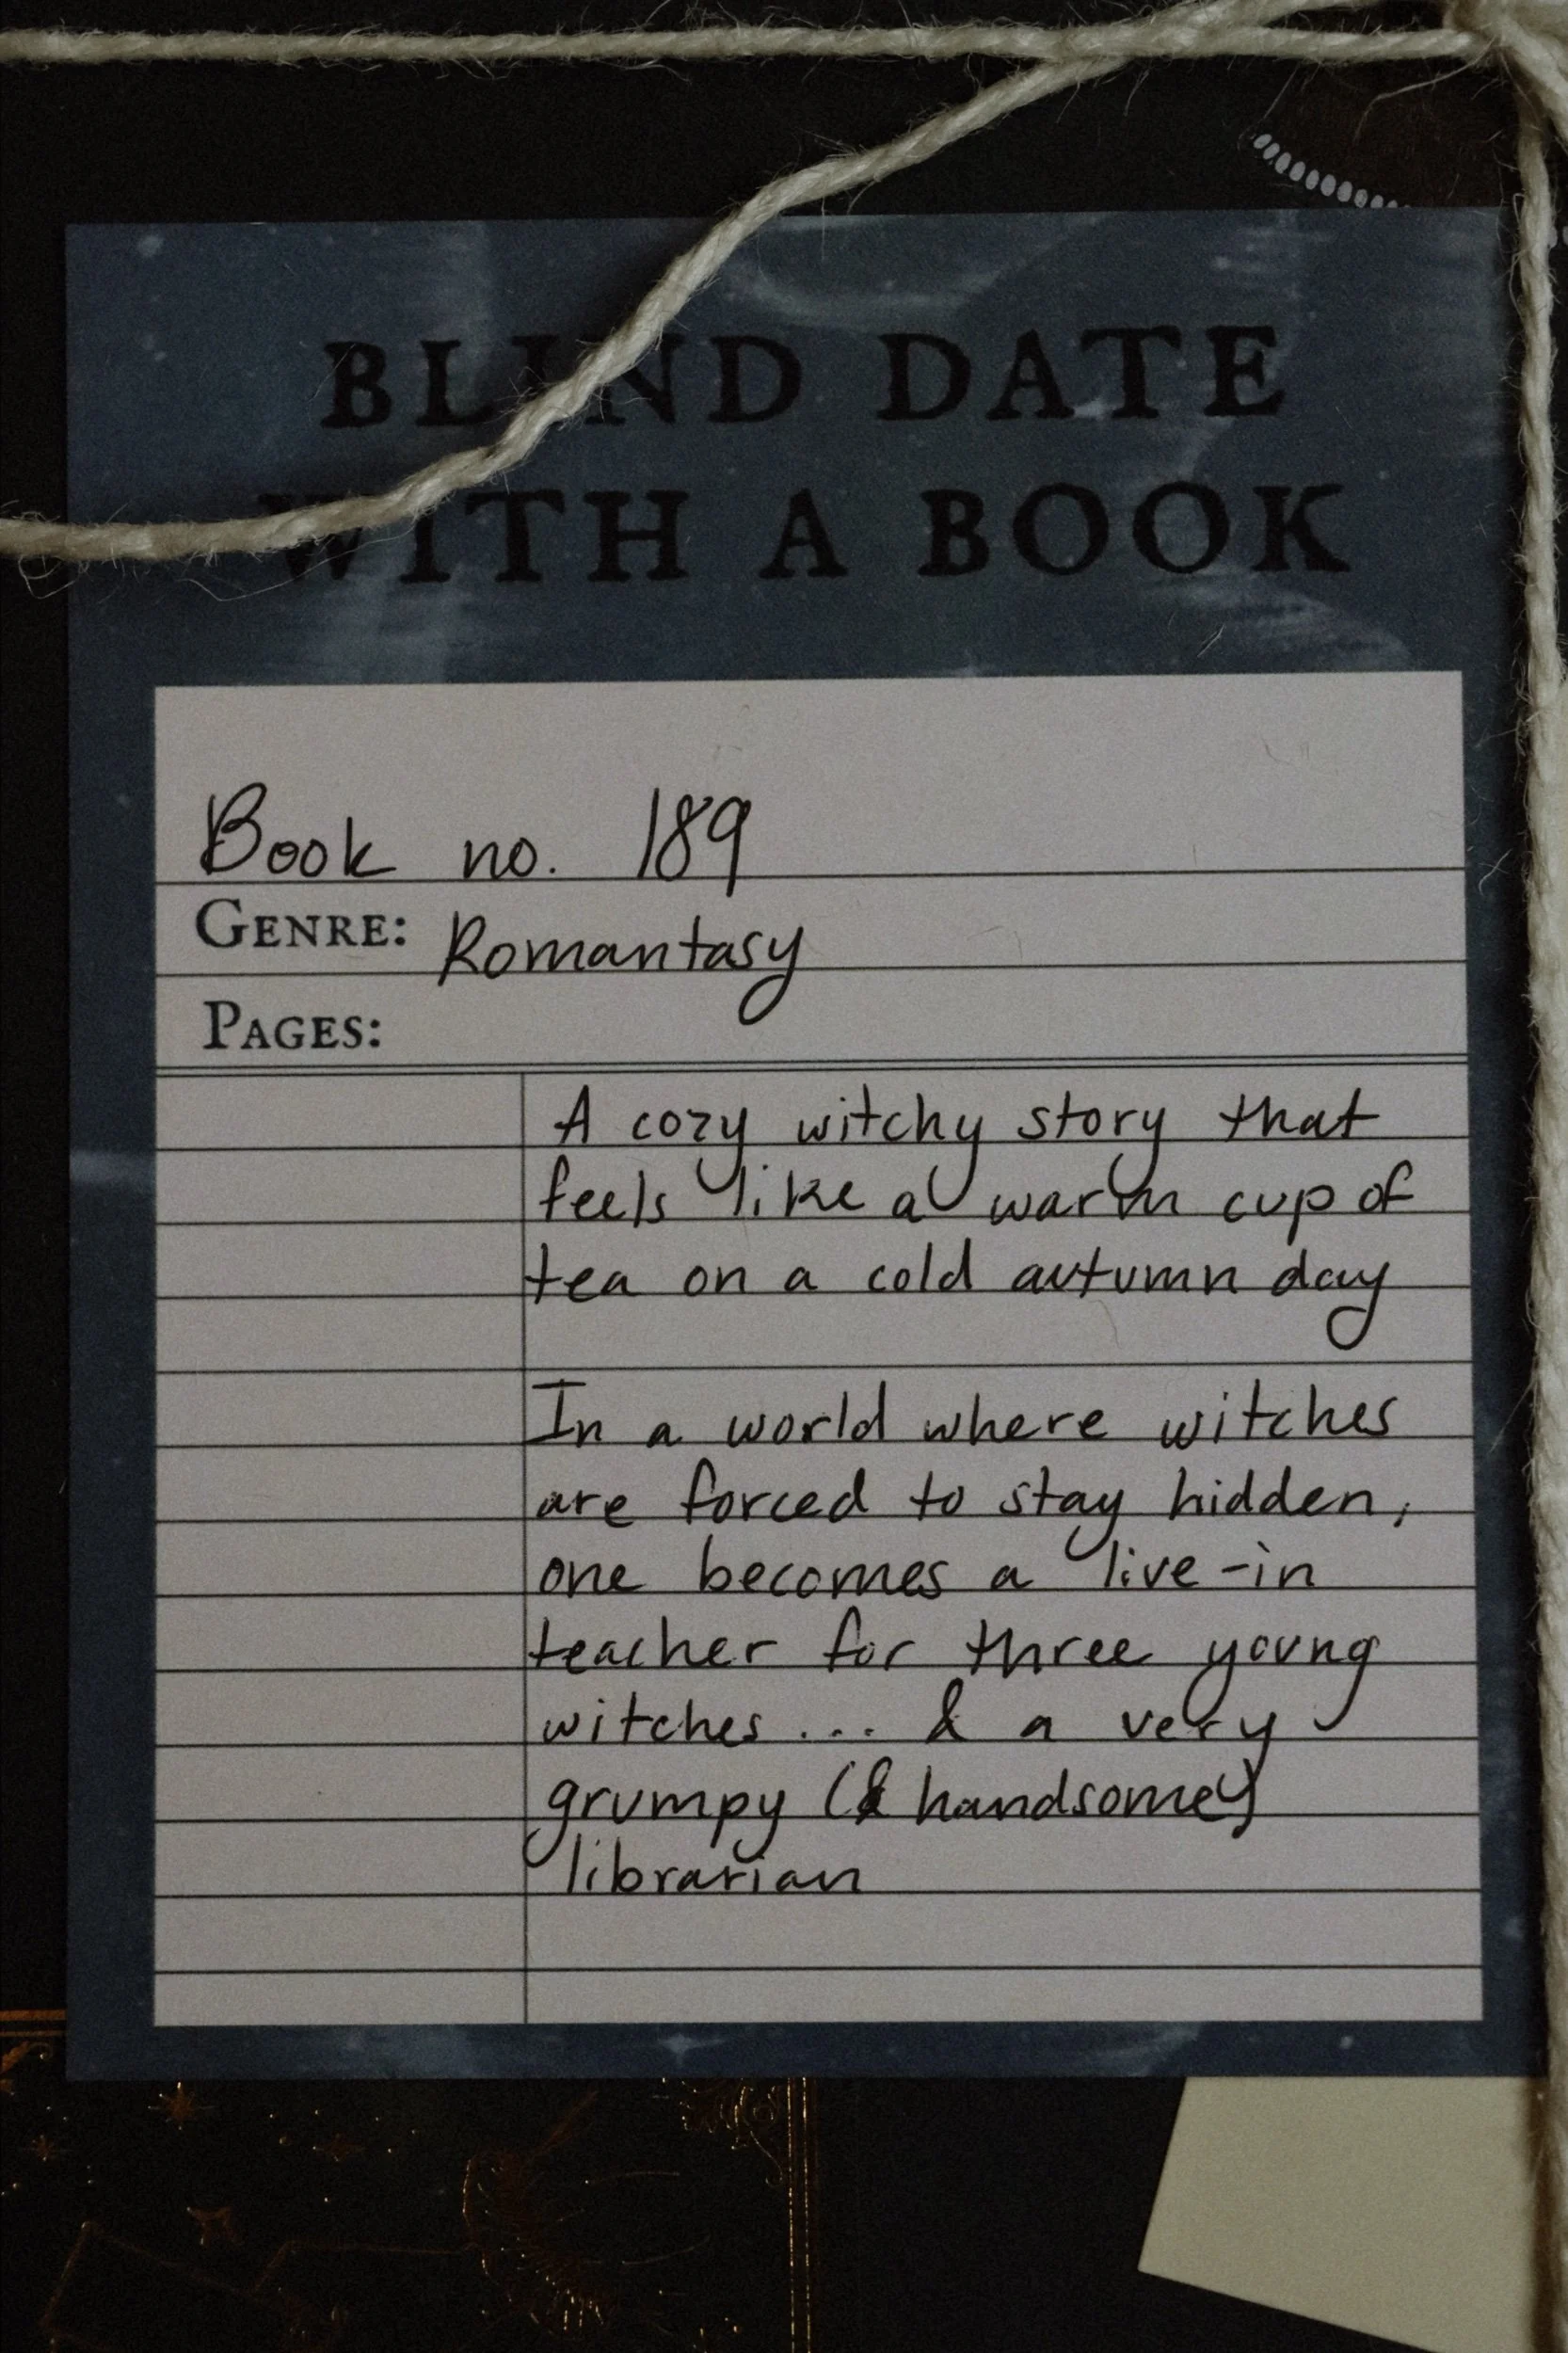 BLIND DATE
WITH A BOOK
Book no. 189
GENRE: Romantasy
PAGES:
A cozy witchy story that
feels like a warm cup of
tea on a cold autumn day
In a world where witches
are forced to stay hidden,
one becomes a live-in
teacher for three young
witches... & a very
grumpy (& handsome)
librarian